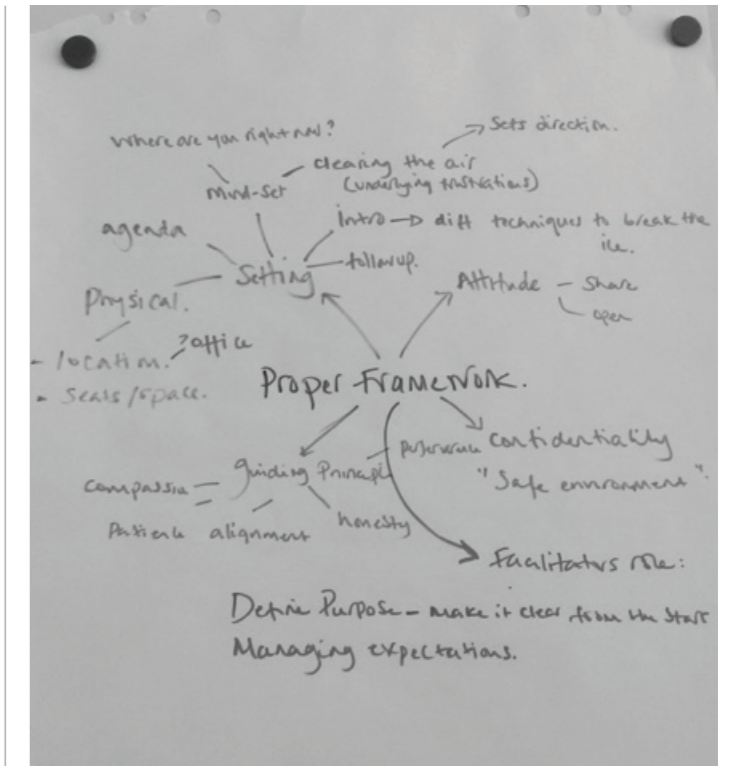 Where are you right now?
Sets direction.
clearing the air
(underlying frustrations)
Mind-Set
Intro → diff techniques to break the
ice.
agenda
followup.
Setting
Attitude - Share
open
Physical.
- location. ?office
- Seats/space.
Proper Framework.
perseverance
Confidentiality
"Safe environment".
guiding Principl
compassion
Patience alignment honesty
Facilitators role:
Define Purpose - make it clear from the start
Managing expectations.